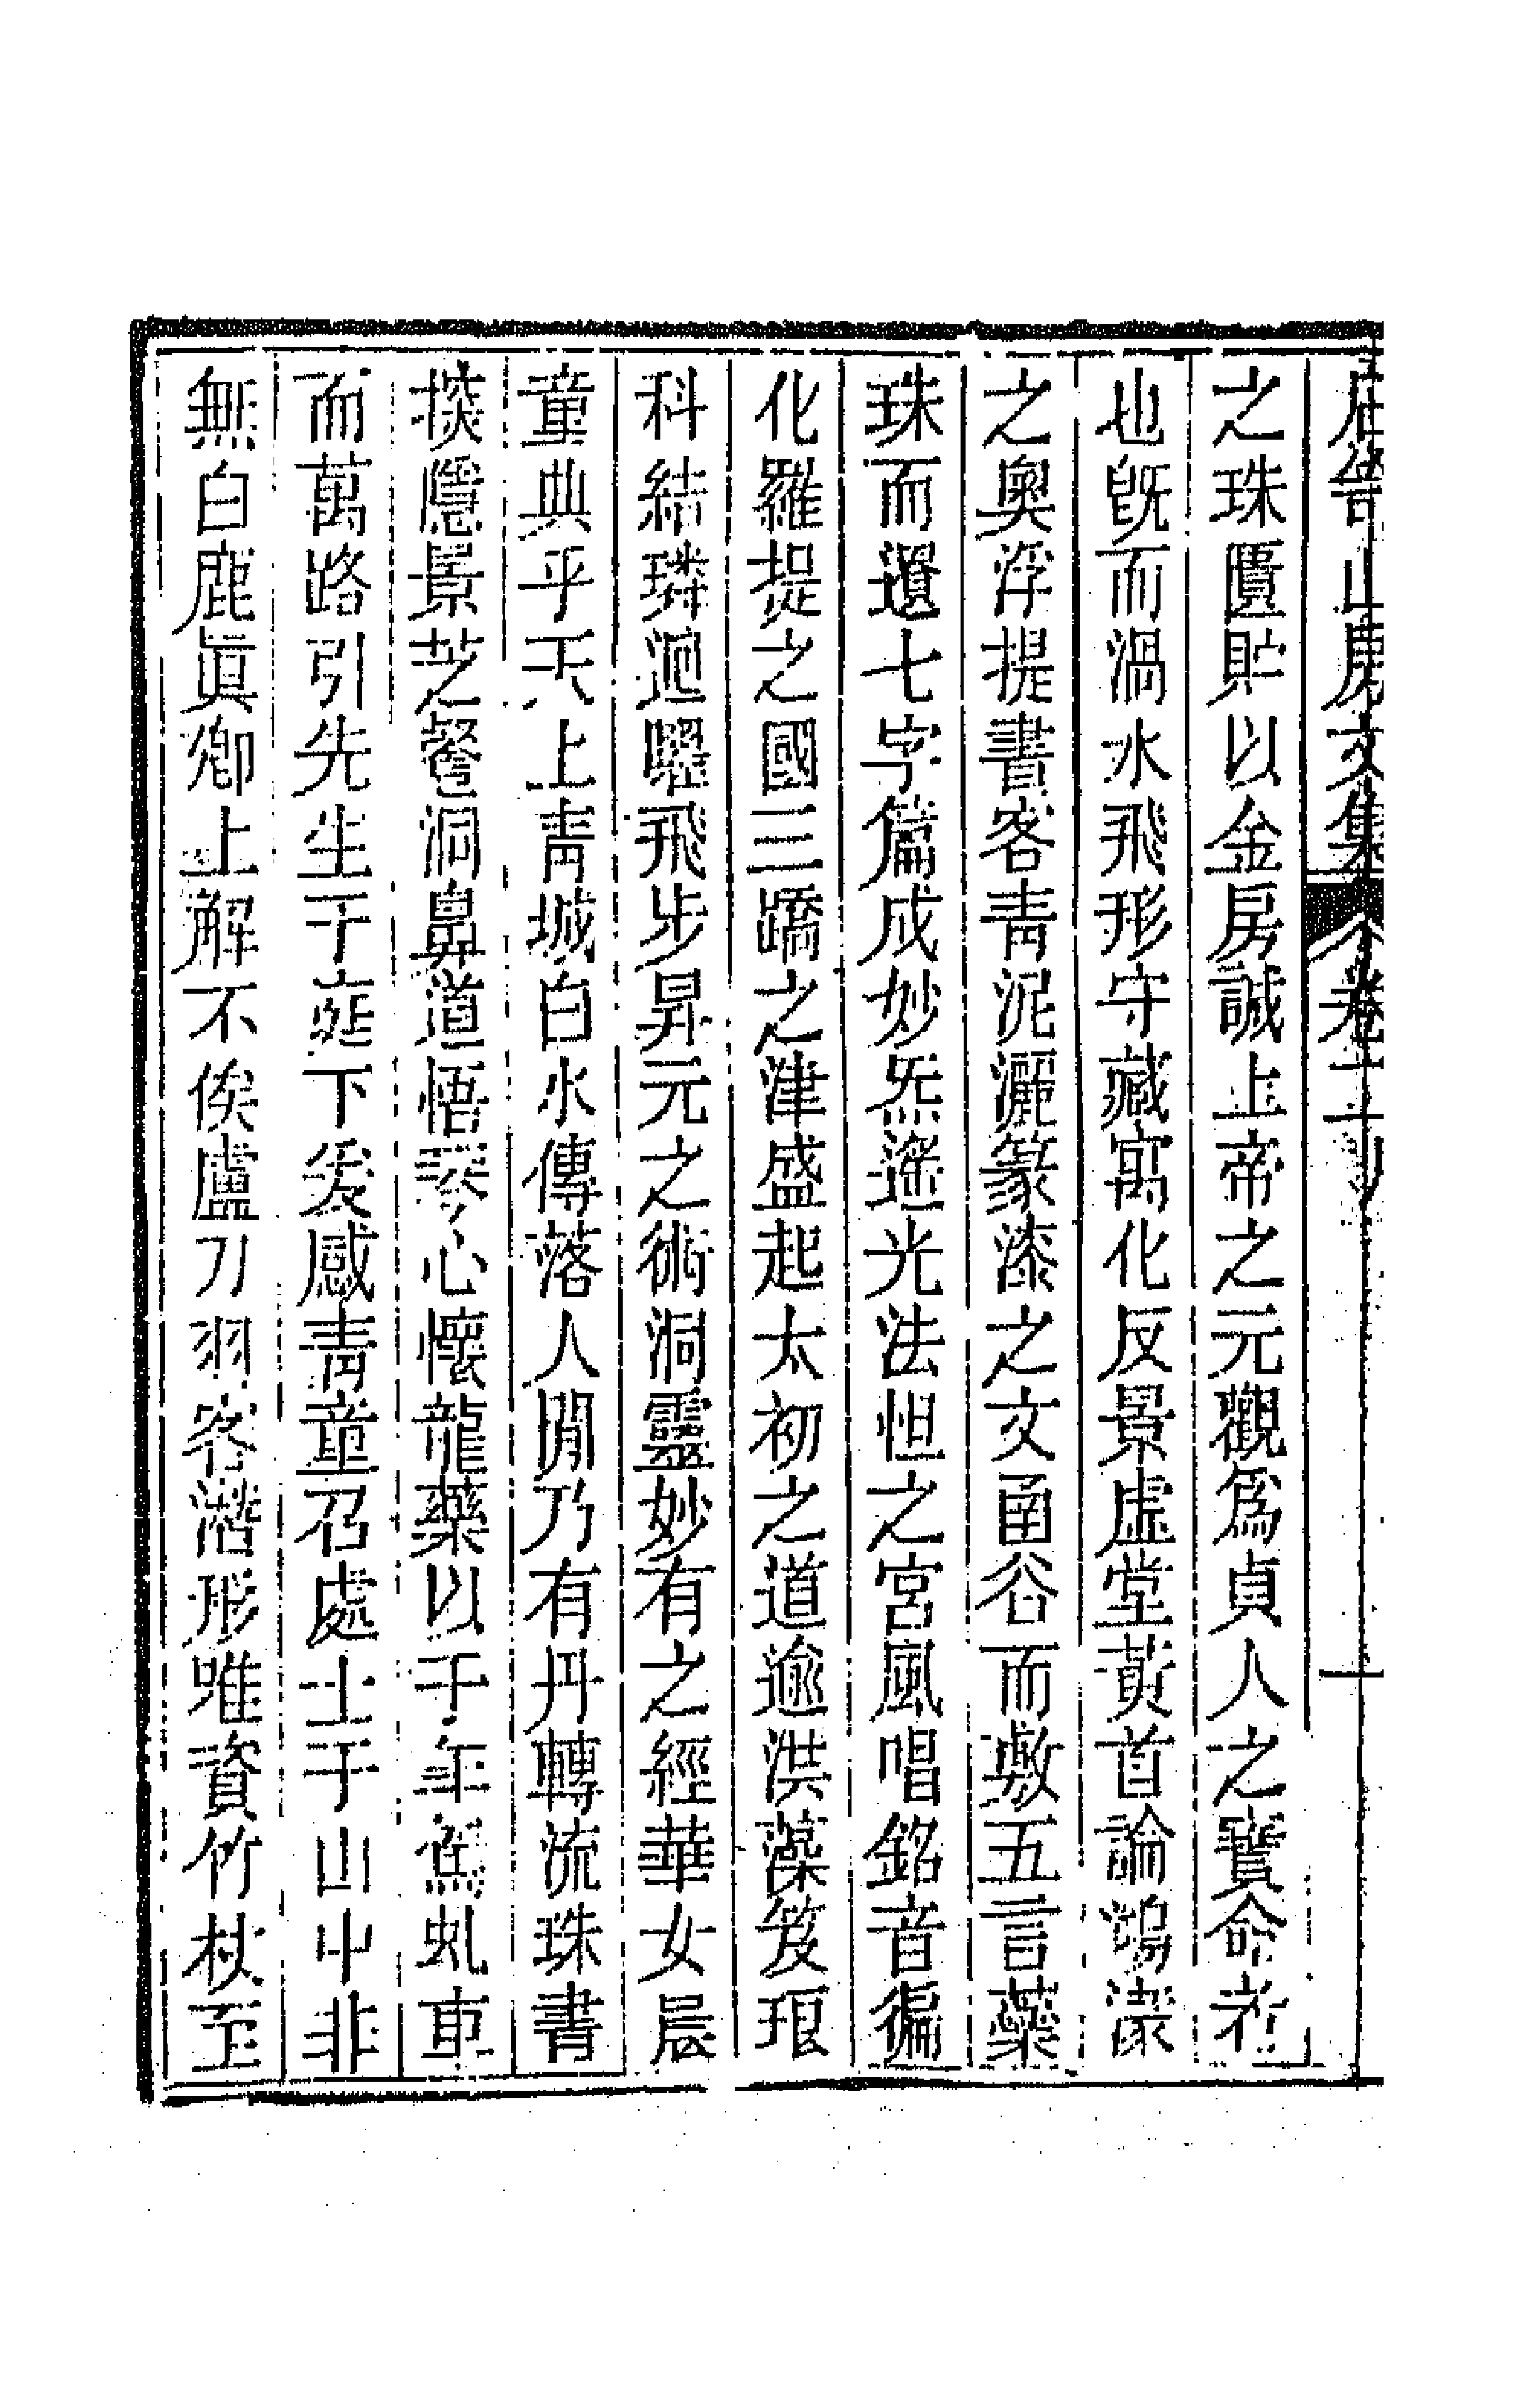 山房文集 卷二 十
之珠匱貯以金房誠上帝之元觀為貞人之寶命者
也旣而渦水飛形守藏寓化反景虛堂黃首論鴻濛
之奧浮提書客青泥灑篆漆之文甬谷而敷五言藥
珠而還七字篇成妙炁遙光法怛之宮風唱銘音徧
化羅提之國三蹻之津盛起太初之道逾洪藻笈琅
科結璘迴曜飛步昇元之術洞靈妙有之經華女晨
童典乎天上青城白水傳落人閒乃有丹轉流珠書
掞隱景芝餐洞鼻道悟琴心懷龍藥以千年駕虬車
而萬路引先生于莚下爰感青童召處士于山中非
無白鹿眞卿上解不俟盧刀羽客潛形唯資竹杖至